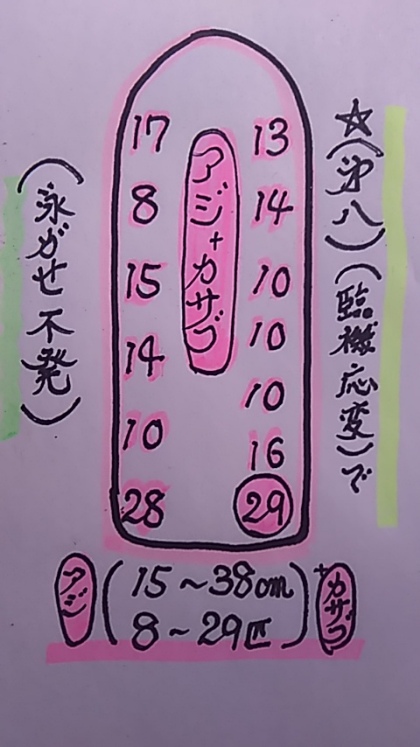 ☆(第八)(臨機応変)で
アジ+カサゴ
17 13
8 14
15 10
14 10
10 10
28 16
29
(泳がせ不発)
アジ(15~38cm
8~29匹)+カサゴ